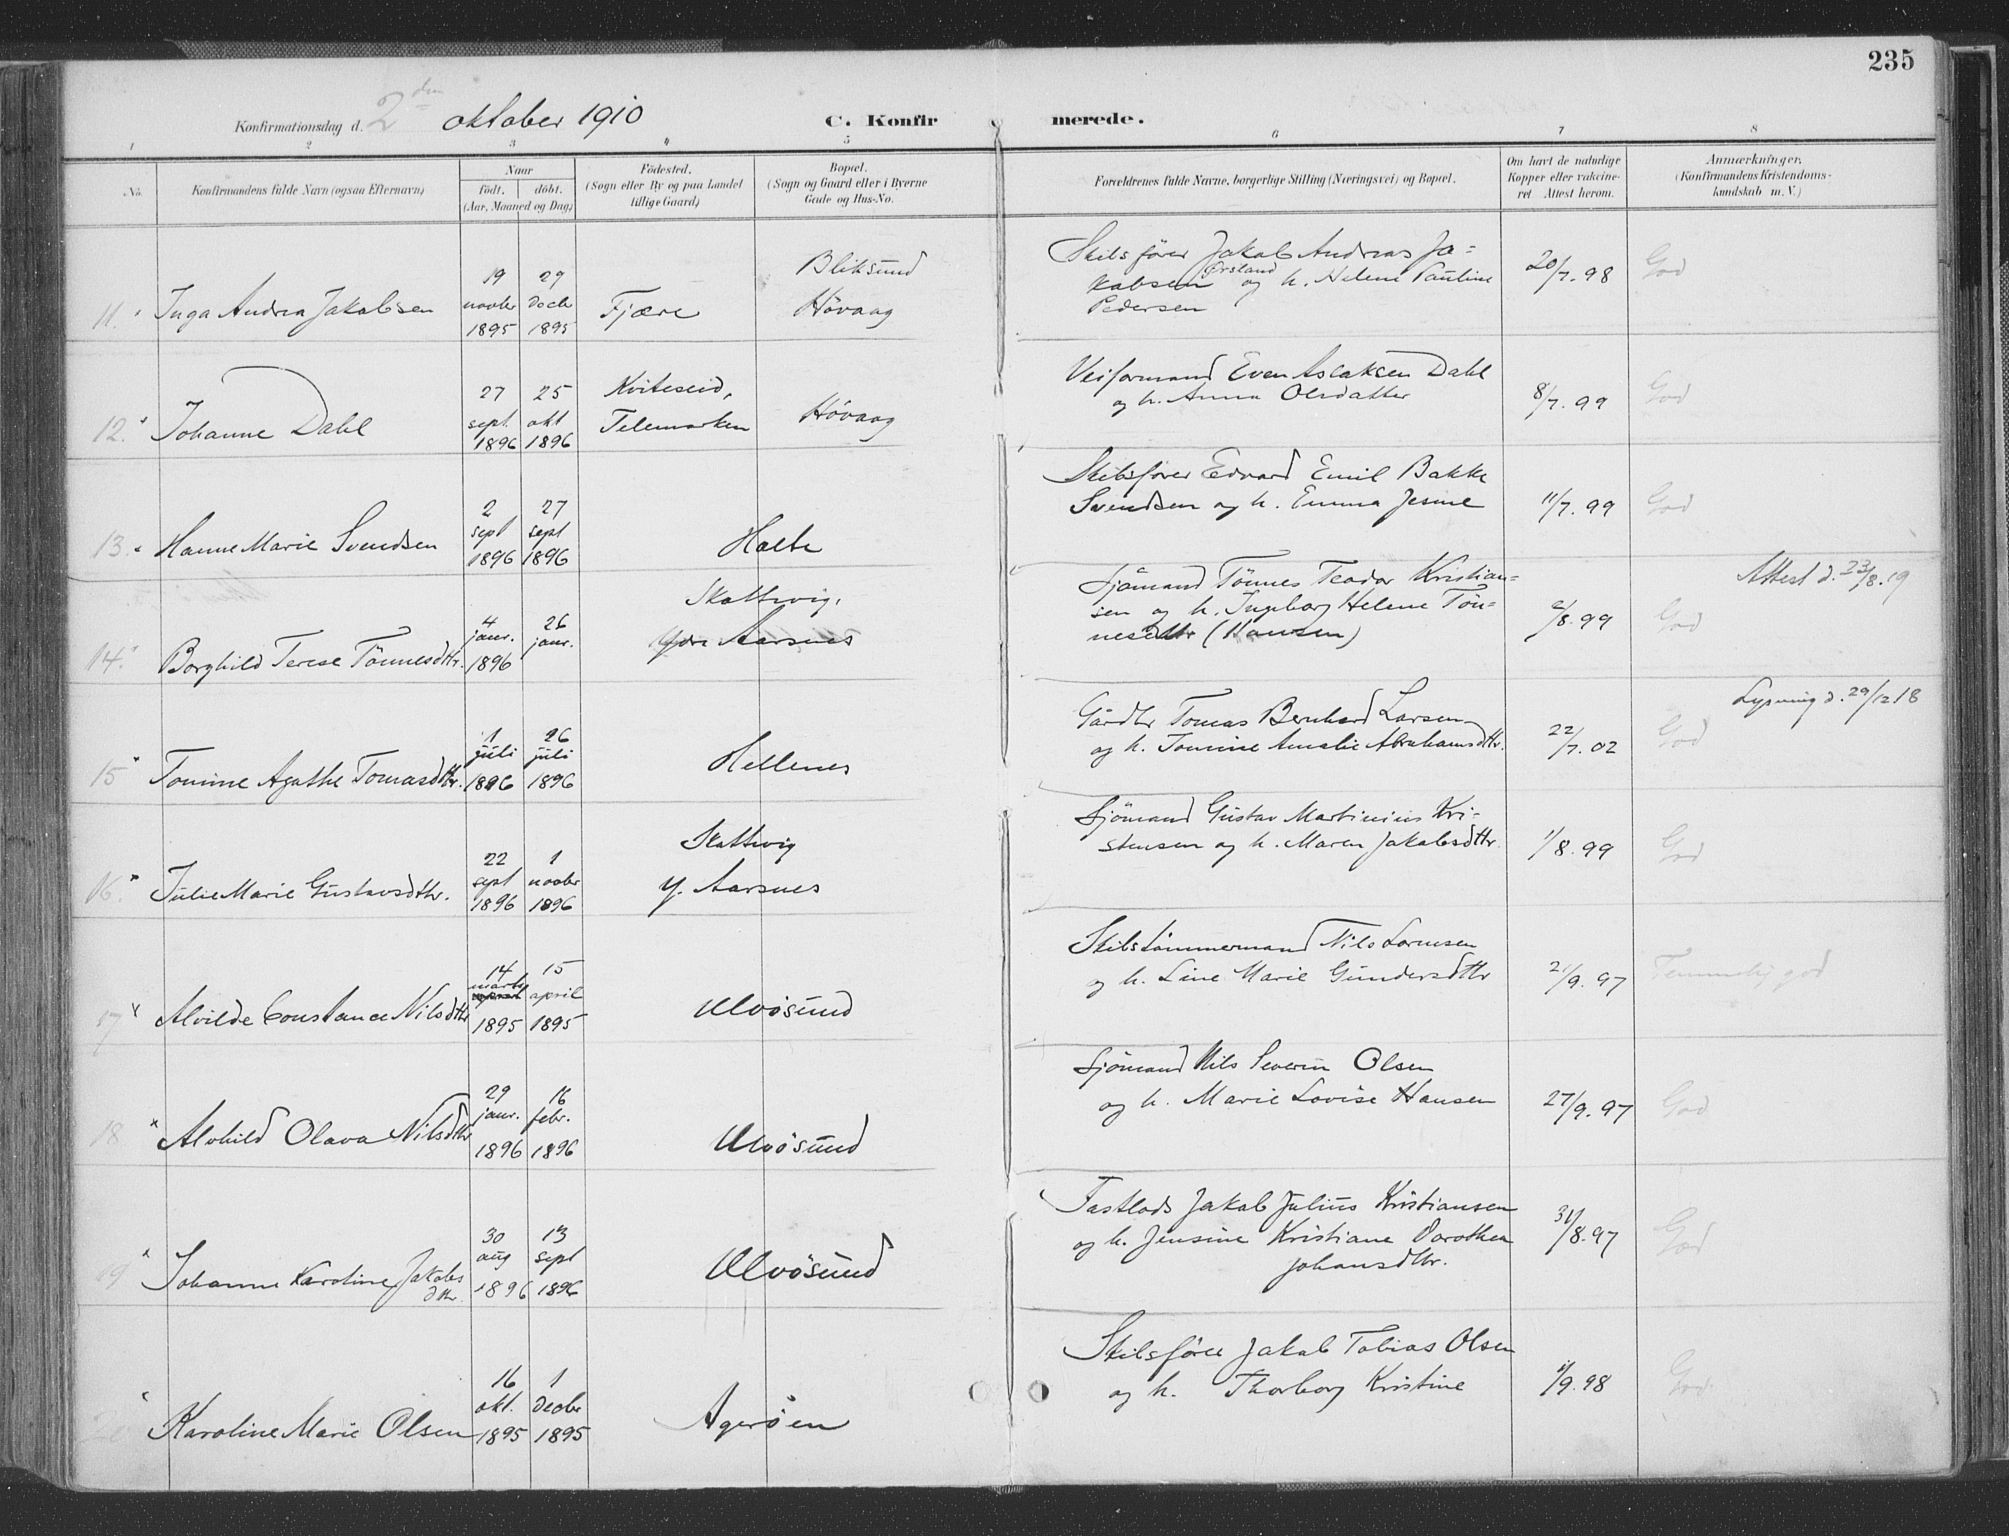 235
Konfirmationsdag d. 2den oktober 1910 C. Konfirmerede.
1 2 3 4 5 6 7 8
No. Konfirmandens fulde Navn (ogsaa Efternavn)
Naar
födt. döbt.
(Aar, Maaned og Dag)
Födested.
(Sogn eller By og paa Landet
tillige Gaard)
Bopæl.
(Sogn og Gaard eller i Byerne
Gade og Hus-No.
Forældrenes fulde Navne, borgerlige Stilling (Næringsvei) og Bopæl.
Om havt de naturlige
Kopper eller vakcine-
ret Attest herom.
Anmærkninger.
(Konfirmandens Kristendoms-
kundskab m. V.)
11. Inga Andrea Jakobsen
19 novbr 1895
29 decbr 1895
Fjære
Bliksund
Hövaag
Skibsförer Jakob Andreas Ja=
kobsen Örsland og h. Helene Pauline
Pedersen
20/7.98
God
12. Johanne Dahl
27 sept. 1896
25 okt 1896
Kviteseid,
Telemarken
Hövaag
Veiformand Even Aslaksen Dahl
og h. Anna Olsdatter
8/7.99
God
13. Hanne Marie Svendsen
2 sept 1896
27 sept 1896
Holte
Skibsförer Edvard Emil Bakke
Svendsen og h. Emma Jesine
11/7.99
God
14. Borghild Terese Tönnesdtr.
4 janr. 1896
26 janr.
Skottevig,
Ydre Aarsnes
Sjömand Tönnes Teodor Kristian=
sen og h. Ingeborg Helene Tön=
nesdtr (Hansen)
2/8.99
God
Attest d. 23/8.19
15 Tomine Agathe Tomasdtr.
1 juli 1896
26 juli 1896
Hellenes
Gårdbr Tomas Bernhard Larsen
og h. Tomine Amalie Abrahamsdtr.
22/7.02
God
Lysning d. 29/12 18
16. Julie Marie Gustavsdtr.
22 sept 1896
1 novbr 1896
Skottevig
Y. Aarsnes
Sjömand Gustav Martinius Kri-
stensen og h. Maren Jakobsdtr.
1/8.99
God
17 Alvilde Constance Nilsdtr
14 marts 1895
15 april 1895
Ulvösund
Skibstömmermand Nils Lornsen
og h. Line Marie Gundersdtr
21/9.97
Temmelig god
18 Alvhild Olava Nilsdtr
29 janr. 1896
16 febr. 1896
Ulvösund
Sjömand Nils Severin Olsen
og h. Marie Lovise Hansen
27/9.97
God
19 Johanne Karoline Jakobs
dtr.
30 aug 1896
13 sept 1896
Ulvösund
Fastlods Jakob Julius Kristiansen
og h. Jensine Kristiane Dorothea
Johansdtr.
31/8.97
God
20 Karoline Marie Olsen
16 okt. 1895
1 decbr 1895
Ageröen
Skibsförer Jakob Tobias Olsen
og h. Thorborg Kristine
1/9.98
God